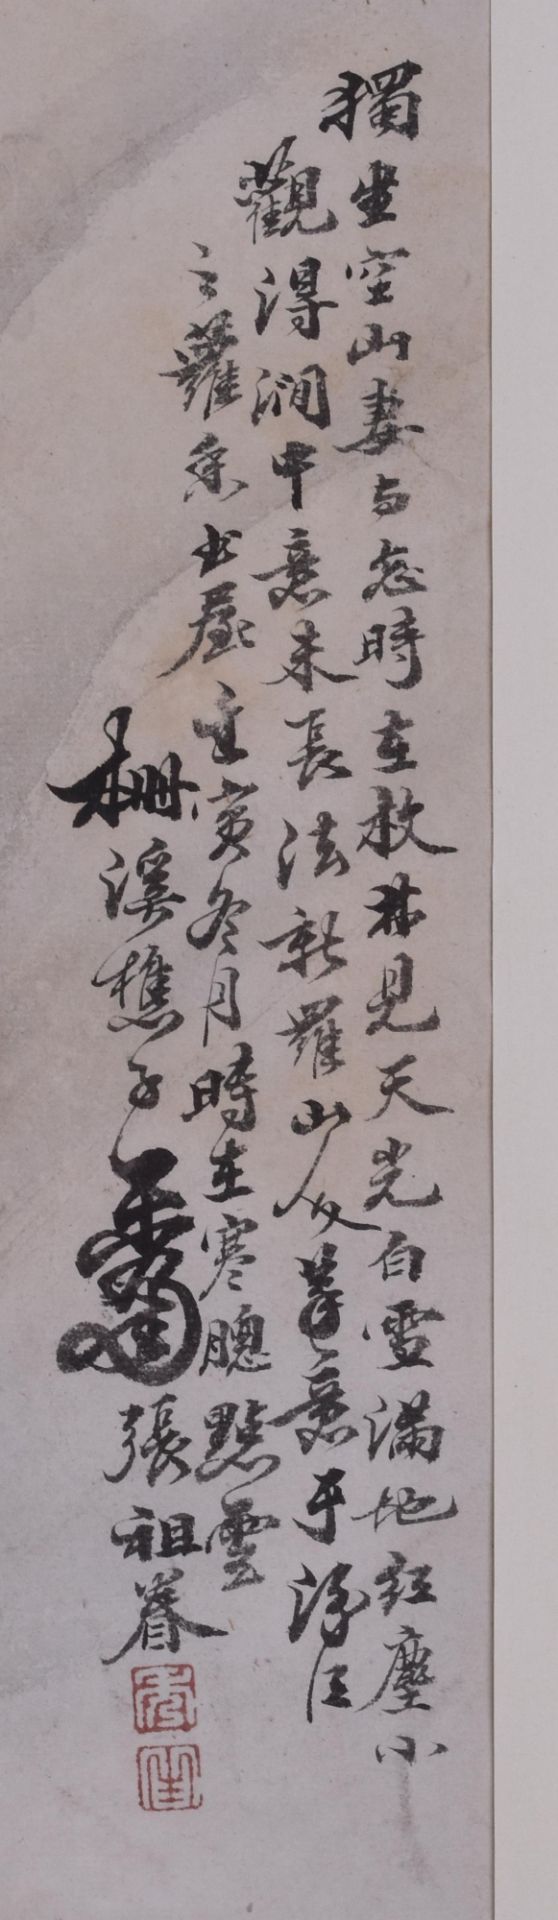 獨坐空山妻与忘時在枚林見天光白雲滿地紅塵小
觀得澗中意未長法新羅山人筆意于浮江
之蘿香书屋壬寅冬月時在寒牕點雲
柵溪樵子 張祖眷